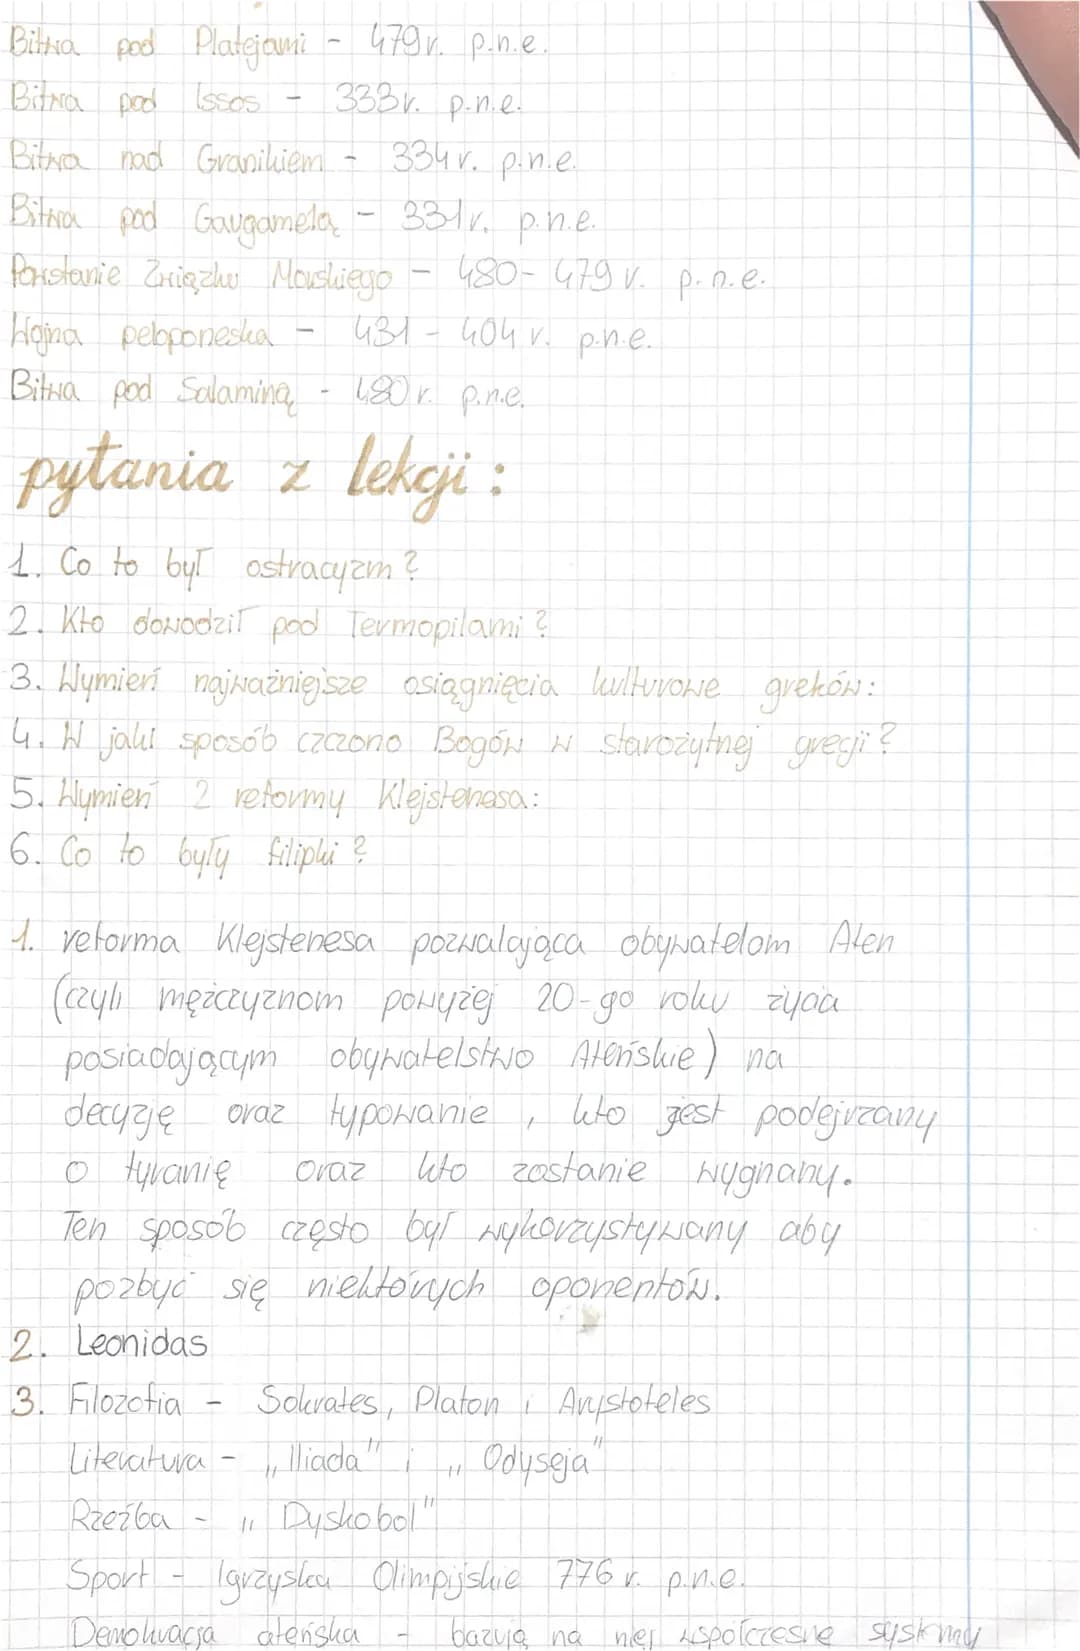 Bitwa pod Platejami - 479r. p.n.e.
Bitwa pod Issos - 333r. p.n.e.
Bitwa nad Granikiem - 334r. p.n.e.
Bitwa pod Gaugamelą - 331r. p.n.e.
Powstanie Związku Morskiego - 480-479 r. p.n.e.
Wojna peloponeska - 431-404 r. p.n.e.
Bitwa pod Salaminą - 480 r. p.n.e.
pytania z lekcji:
1. Co to był ostracyzm?
2. Kto dowodził pod Termopilami?
3. Wymień najważniejsze osiągnięcia kulturowe greków:
4. W jaki sposób czczono Bogów w starożytnej grecji?
5. Wymień 2 reformy Klejstenesa:
6. Co to były filipki?
1. reforma Klejstenesa pozwalająca obywatelom Aten
(czyli mężczyznom powyżej 20-go roku życia
posiadającym obywatelstwo Ateńskie) na
decyzję oraz typowanie, kto jest podejrzany
o tyranię oraz kto zostanie wygnany.
Ten sposób często był wykorzystywany aby
pozbyć się niektórych oponentów.
2. Leonidas
3. Filozofia - Sokrates, Platon i Arystoteles
Literatura - „Iliada" i „Odyseja"
Rzeźba - „Dyskobol"
Sport - Igrzyska Olimpijskie 776 r. p.n.e.
Demokracja ateńska - bazują na niej współczesne systemy